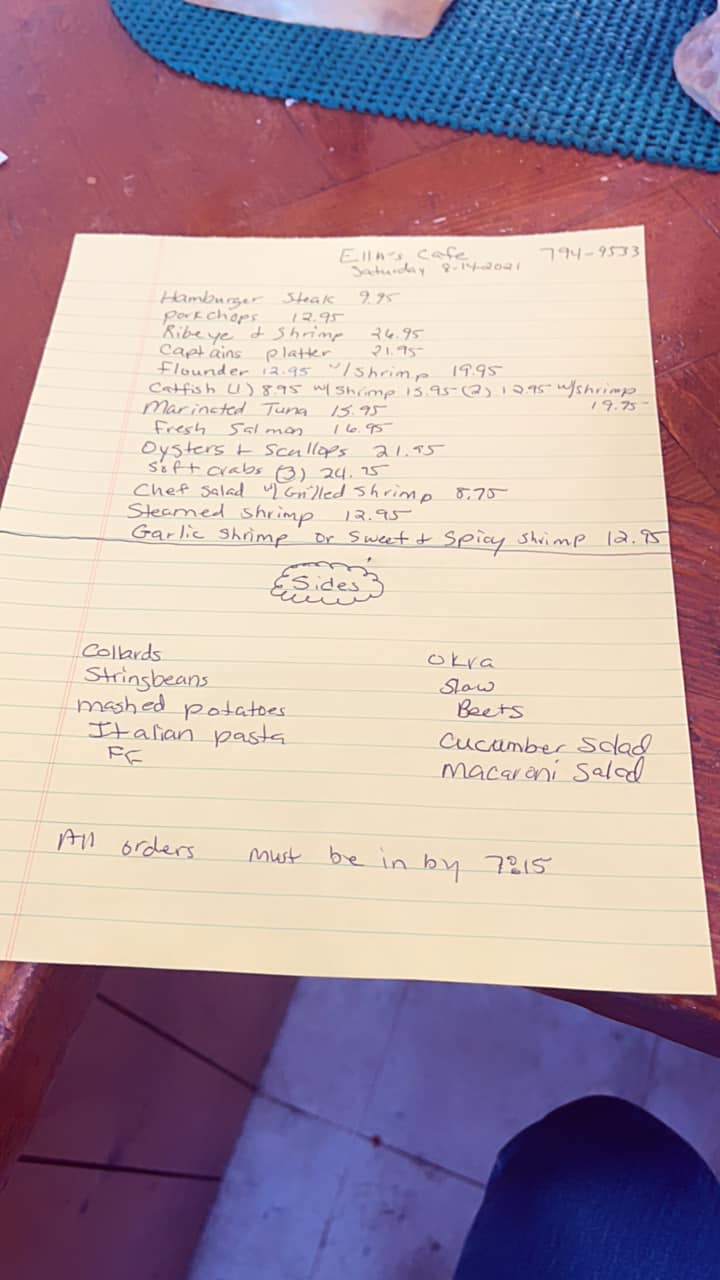 Ella's Cafe 794-9533
Saturday 8-14-2021
Hamburger Steak 9.95
porkchops 12.95
Ribeye & Shrimp 26.95
Captains platter 21.95
flounder 12.95 w/shrimp 19.95
Catfish (1) 8.95 w/ Shrimp 15.95 (2) 12.95 w/shrimp
19.95
Marinated Tuna 15.95
Fresh Salmon 16.95
Oysters & Scallops 21.95
Soft crabs (3) 24.95
Chef Salad w/ Grilled Shrimp 8.75
Steamed shrimp 12.95
Garlic Shrimp or Sweet & Spicy Shrimp 12.95
Sides
Collards Okra
Stringbeans Slaw
mashed potatoes Beets
Italian pasta Cucumber Salad
FF Macaroni Salad
All orders must be in by 7:15